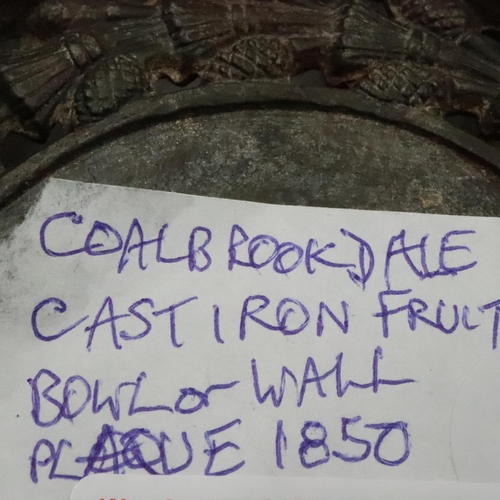 COALBROOKDALE
CAST IRON FRUIT
BOWL or WALL
PLAQUE 1850